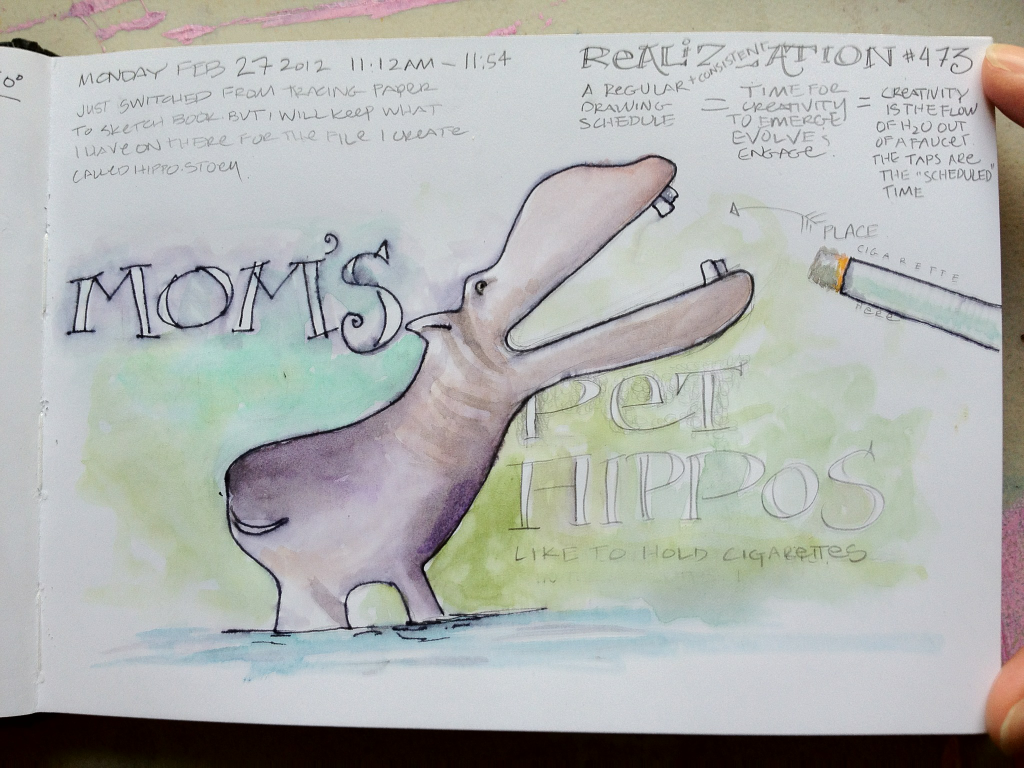 MONDAY FEB 27 2012 11:12AM - 11:54
JUST SWITCHED FROM TRACING PAPER
TO SKETCH BOOK. BUT I WILL KEEP WHAT
I HAVE ON THERE FOR THE FILE I CREATE
CALLED HIPPO.STORY.
REALIZATION #473
A REGULAR + CONSISTENT
DRAWING
SCHEDULE
=
TIME FOR
CREATIVITY
TO EMERGE
EVOLVE &
ENGAGE.
=
CREATIVITY
IS THE FLOW
OF H2O OUT
OF A FAUCET.
THE TAPS ARE
THE "SCHEDULED"
TIME
PLACE
CIGARETTE
HERE
MOM'S
PET
HIPPOS
LIKE TO HOLD CIGARETTES
IN